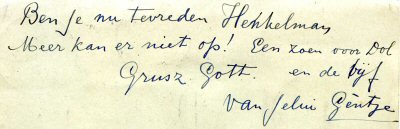 Ben Je nu tevreden Henkelman
Meer kan er niet op! Een zoen voor Dol
Grusz. Gott. en de vijf
van Gentze